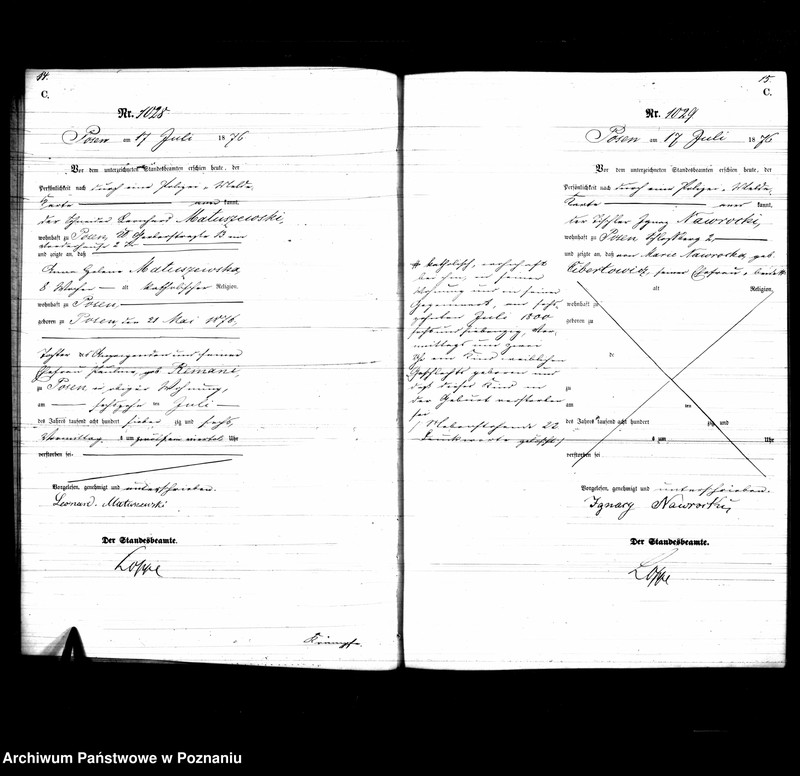 14.
C.
Nr. 1028
Posen am 17 Juli 1876
Vor dem unterzeichneten Standesbeamten erschien heute, der
Persönlichkeit nach durch eine Polizei-Melde-
Karte kannt,
der Schneider Matuszewski,
wohnhaft zu Posen,
und zeigte an, daß
Anna Helene Matuszewska,
8 Wochen alt katholischer Religion,
wohnhaft zu Posen,
geboren zu Posen, den 21 Mai 1876,
Tochter des Anzeigenden und seiner
Ehefrau Pauline geb Remane,
zu Posen in obiger Wohnung,
am sechszehn ten Juli
des Jahres tausend acht hundert sieben zig und sechs,
Vormittag um Uhr
verstorben sei.
Vorgelesen, genehmigt und unterschrieben.
Leonard Matuszewski
Der Standesbeamte.
Loppe
Krämpfe.
15.
C.
Nr. 1029
Posen am 17 Juli 1876
Vor dem unterzeichneten Standesbeamten erschien heute, der
Persönlichkeit nach durch eine Polizei-Melde-
Karte aner kannt,
der Tischler Ignaz Nawrocki,
wohnhaft zu Posen Schloßberg 2,
und zeigte an, daß von Marie Nawrocka, geb
seiner Ehefrau,
alt Religion,
wohnhaft zu
geboren zu
de
zu
am ten
des Jahres tausend acht hundert zig und
um Uhr
verstorben sei
katholisch, wohnhaft
bei ihm, in seiner
Wohnung und in seiner
Gegenwart, am sechs-
zehnten Juli 1800
sechs und siebenzig, Vor-
mittags um zwei
Uhr ein Kind weiblichen
Geschlechts geboren und
daß dieses Kind in
der Geburt verstorben
sei
Nebenstehende 22
Druckworte gelöscht
Vorgelesen, genehmigt und unterschrieben.
Ignacy Nawrocki,
Der Standesbeamte.
Loppe
Archiwum Państwowe w Poznaniu